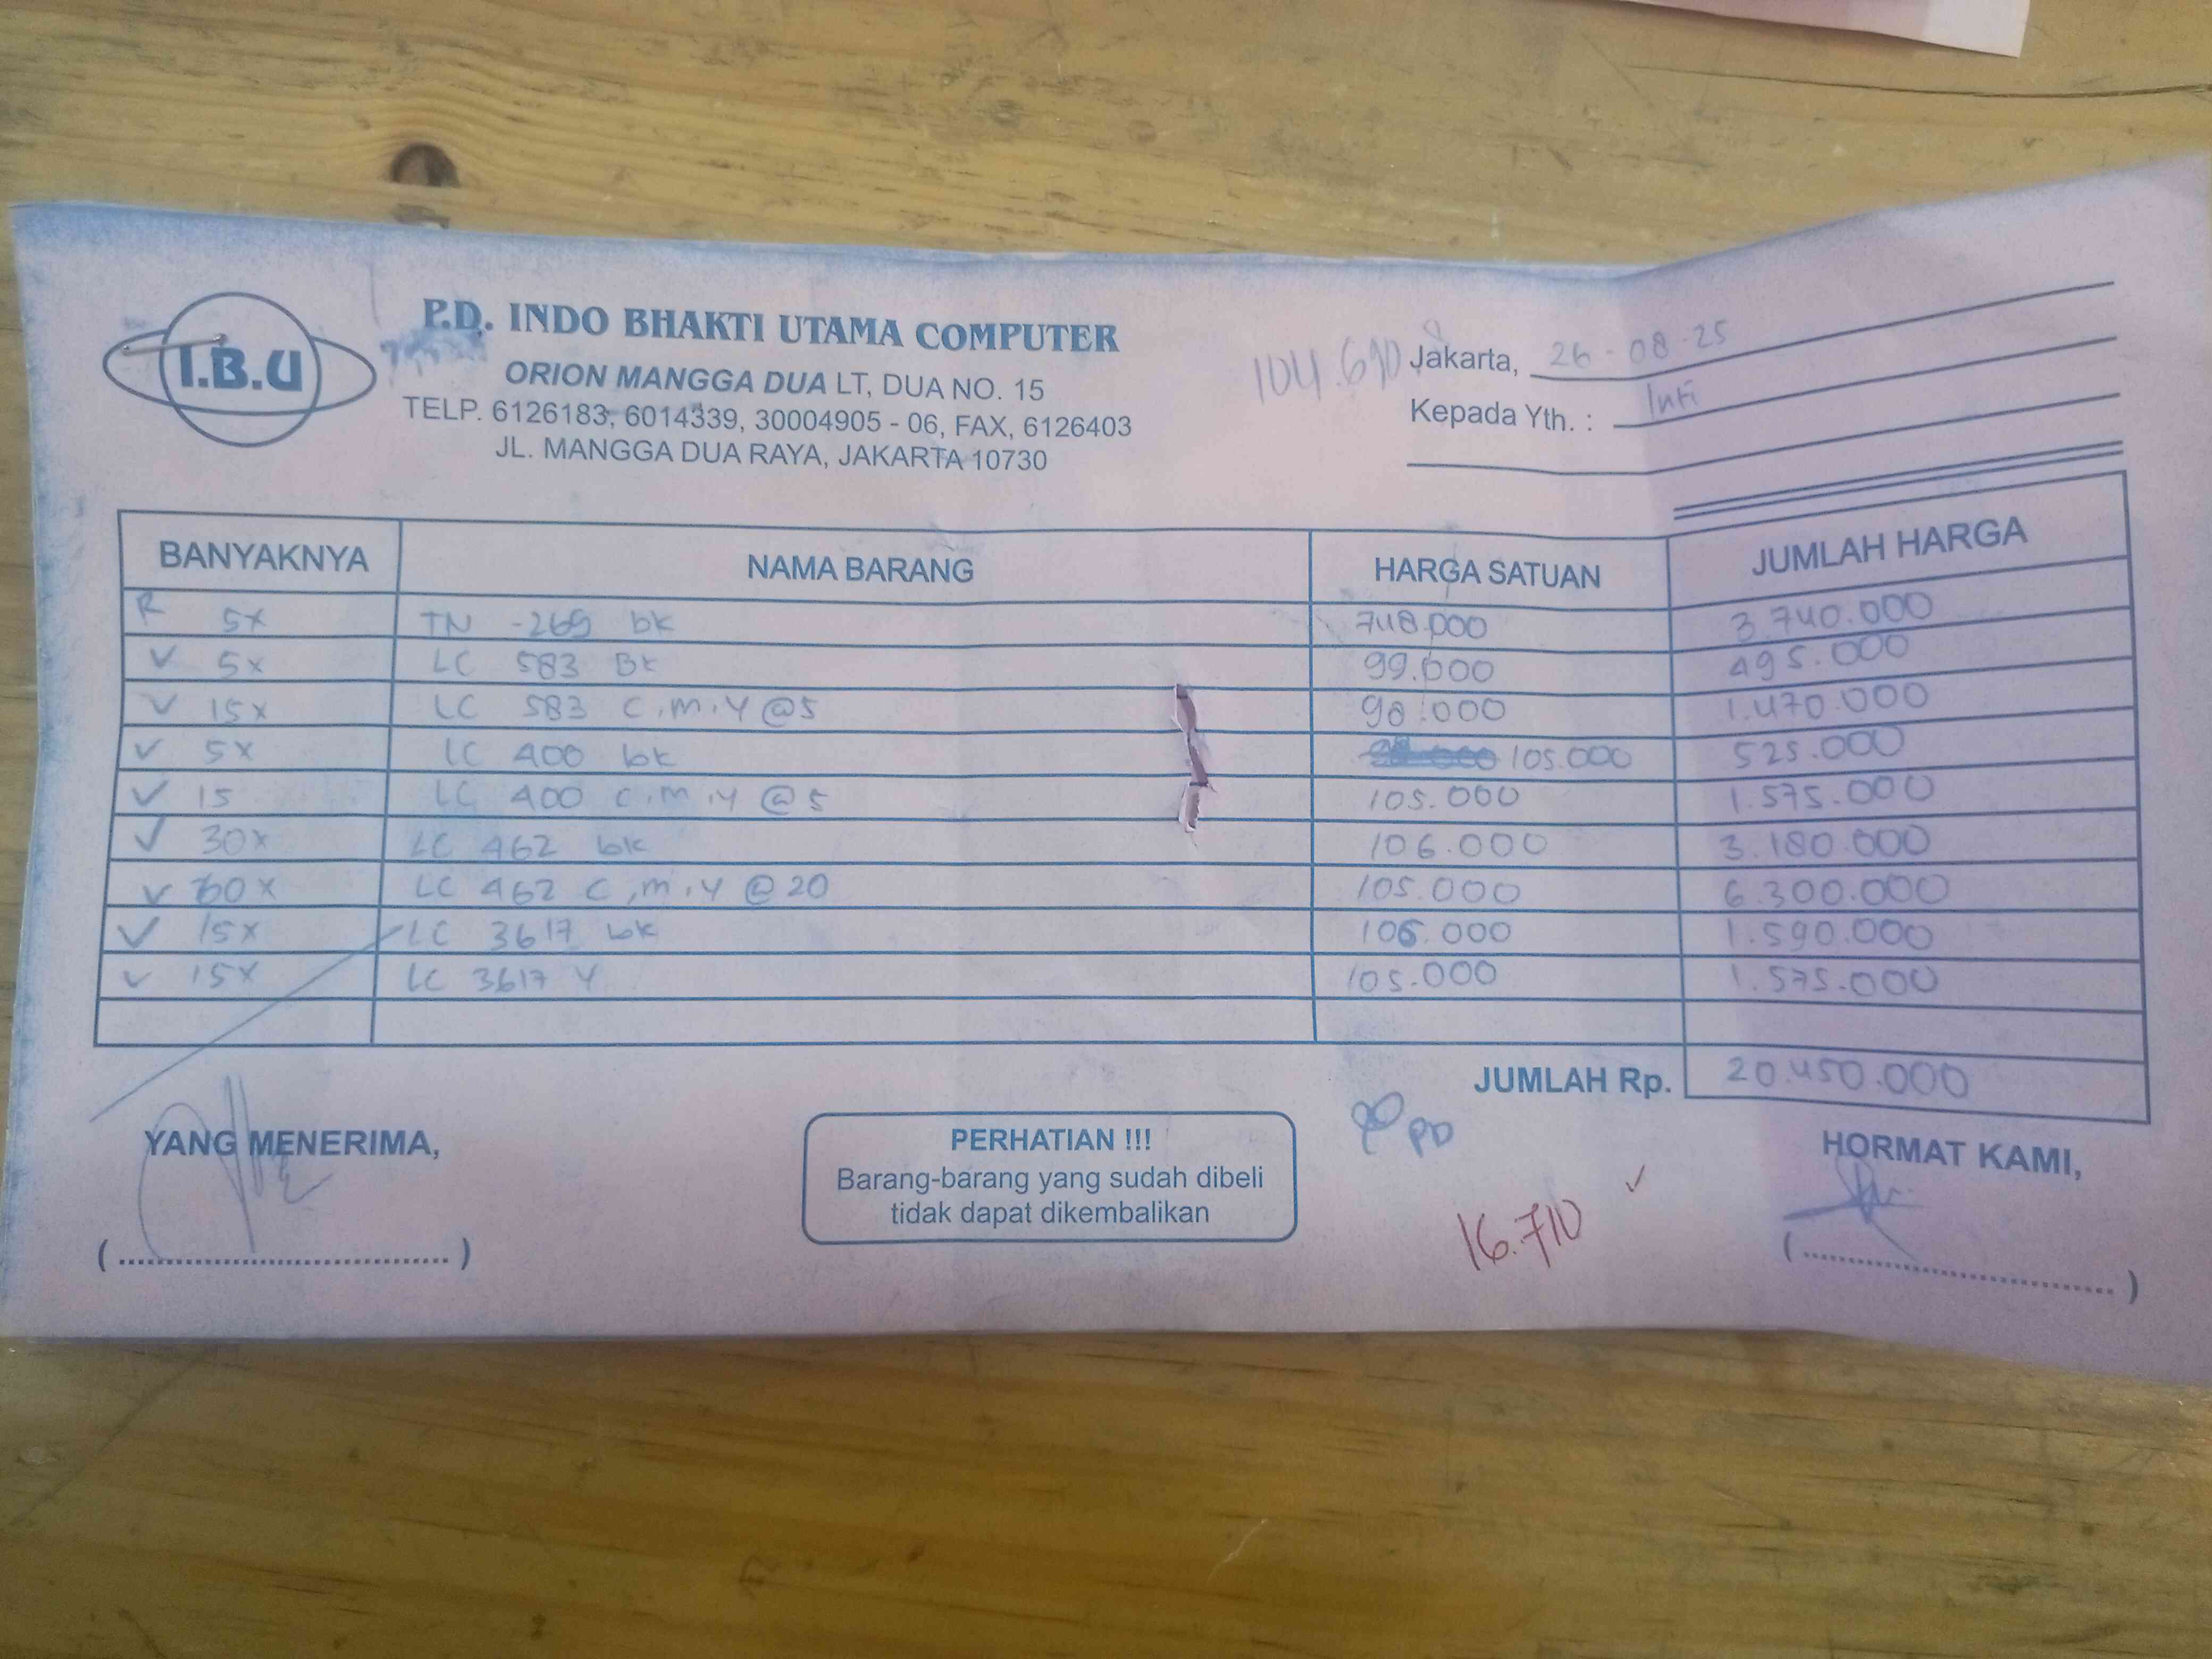 I.B.U
P.D. INDO BHAKTI UTAMA COMPUTER
ORION MANGGA DUA LT, DUA NO. 15
TELP. 6126183, 6014339, 30004905 - 06, FAX, 6126403
JL. MANGGA DUA RAYA, JAKARTA 10730
104.690
Jakarta, 26-08-25
Kepada Yth. : Inti
BANYAKNYA NAMA BARANG HARGA SATUAN JUMLAH HARGA
R 5x TN -269 bk 748.000 3.740.000
✓ 5x LC 583 Bk 99.000 495.000
✓ 15x LC 583 C,m,Y @5 98.000 1.470.000
✓ 5x LC 400 bk 105.000 525.000
✓ 15 LC 400 C,m,Y @5 105.000 1.575.000
✓ 30x LC 462 bk 106.000 3.180.000
✓ 60x LC 462 C,m,Y @20 105.000 6.300.000
✓ 15x LC 3617 bk 106.000 1.590.000
✓ 15x LC 3617 Y 105.000 1.575.000
JUMLAH Rp. 20.450.000
YANG MENERIMA,
PERHATIAN !!!
Barang-barang yang sudah dibeli
tidak dapat dikembalikan
PD
16.710 ✓
HORMAT KAMI,